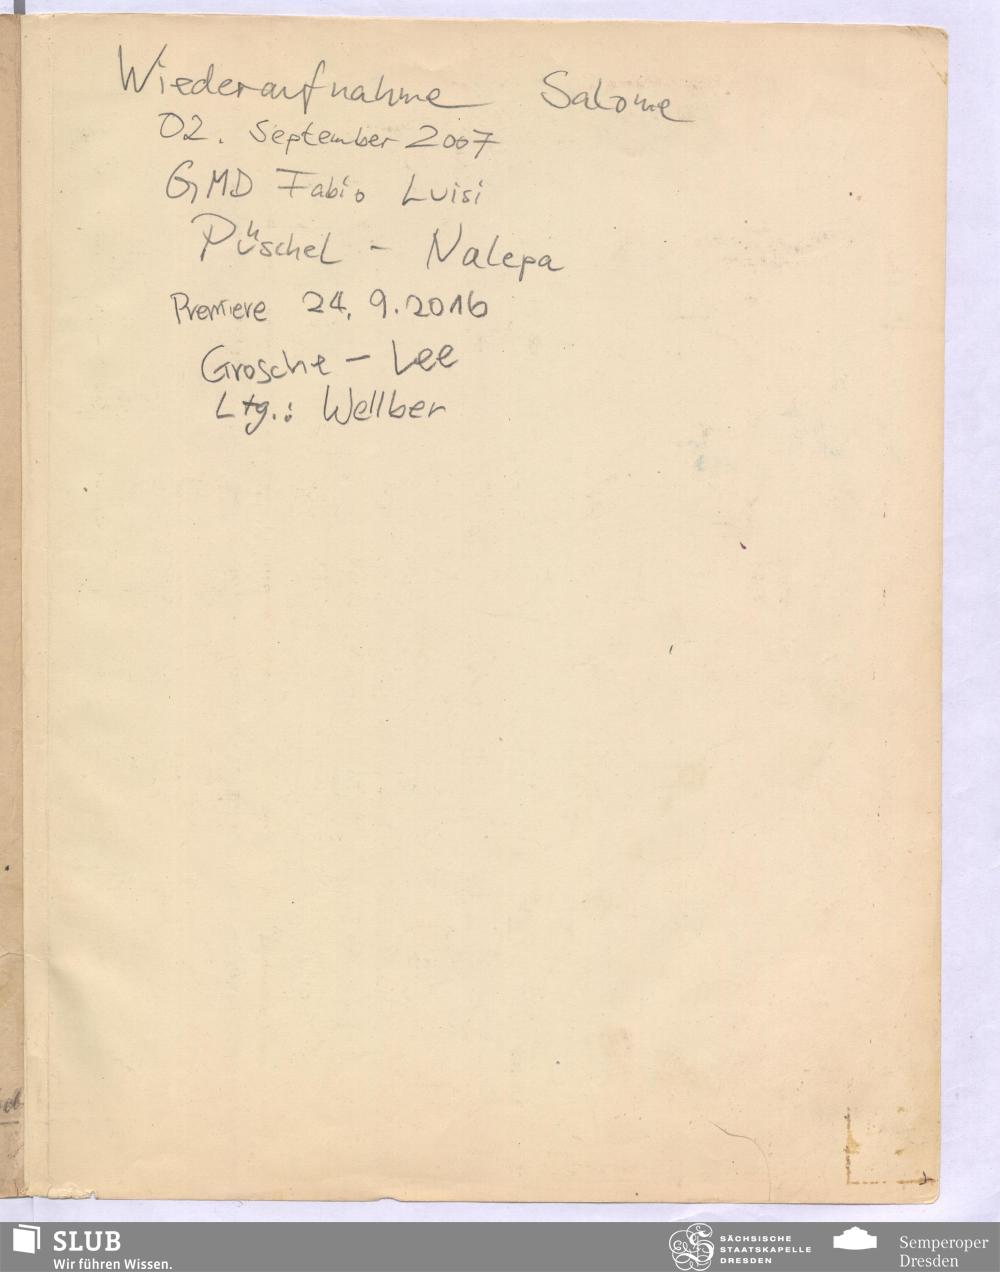 Wiederaufnahme Salome
02. September 2007
GMD Fabio Luisi
Püschel - Nalepa
Premiere 24. 9. 2016
Grosche - Lee
Ltg.: Wellber
SLUB
Wir führen Wissen.
SÄCHSISCHE
STAATSKAPELLE
DRESDEN
Semperoper
Dresden